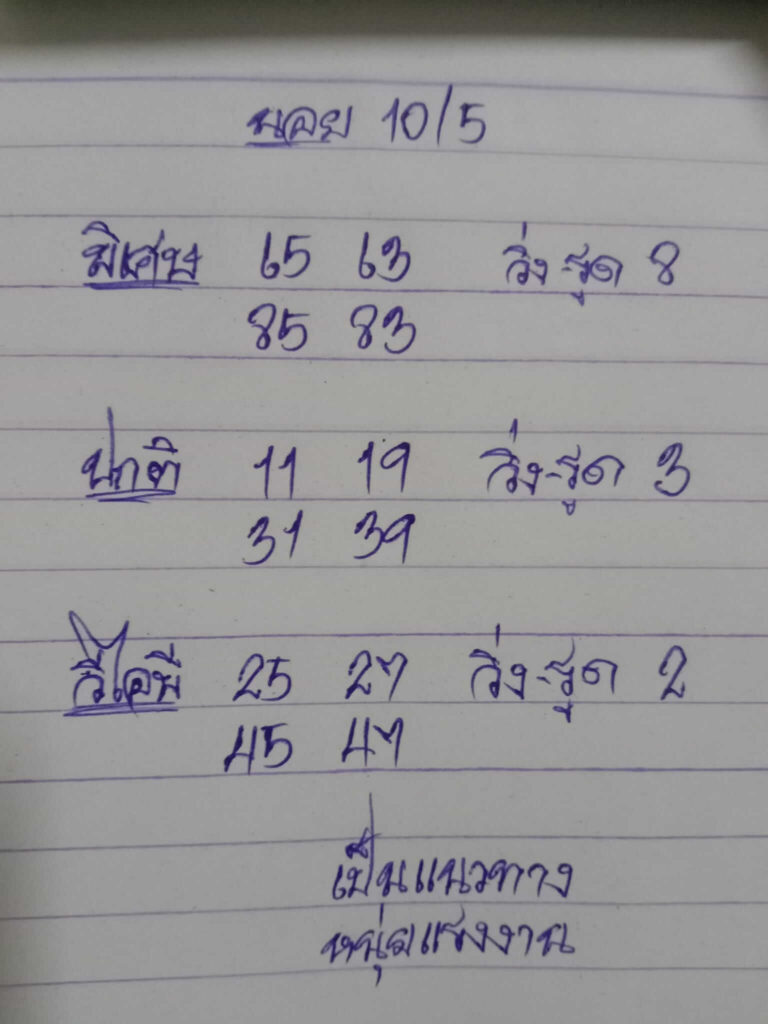 นอย 10/5
พิเศษ 65 63 วิ่ง-รูด 8
85 83
ปกติ 11 19 วิ่ง-รูด 3
31 39
วีไอพี 25 27 วิ่ง-รูด 2
45 47
เป็นแนวทาง
หนุ่มแรงงาน